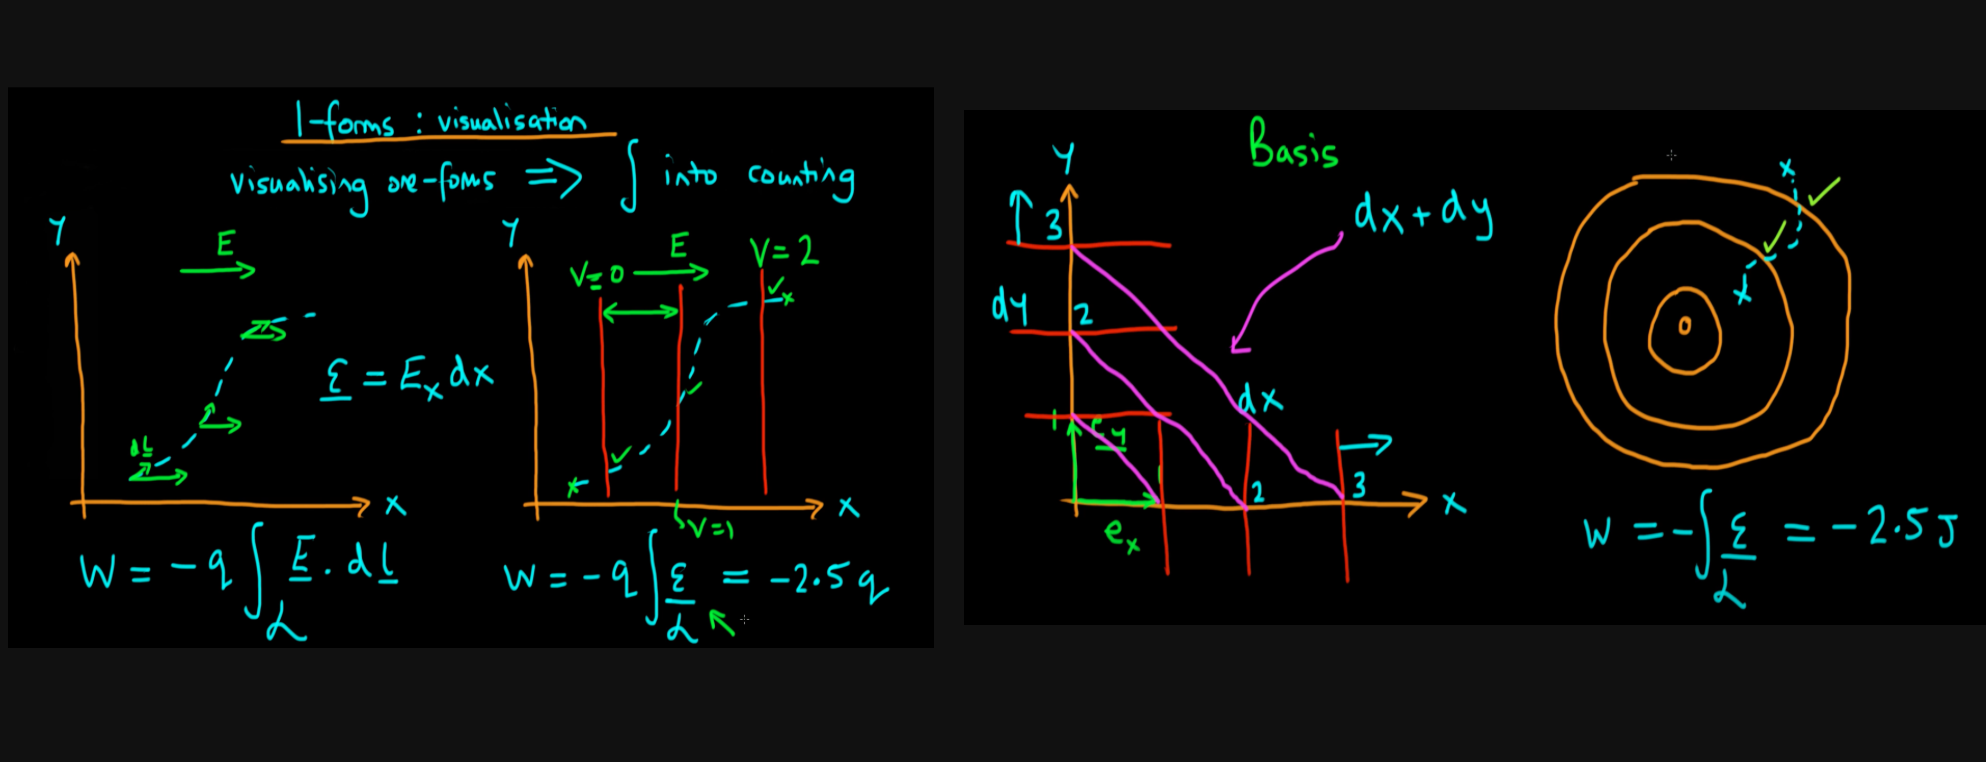 1-forms : visualisation
visualising one-foms => ∫ into counting
Y
E
dL
ℰ = E_x dx
X
W = -q ∫_L E . dL
Y
V=0
E
V=2
V=1
X
W = -q ∫_L ℰ = -2.5 q
Basis
Y
3
dx+dy
dy
2
dx
1
e_y
1
2
3
X
e_x
x
x
W = -∫_L ℰ = -2.5 J